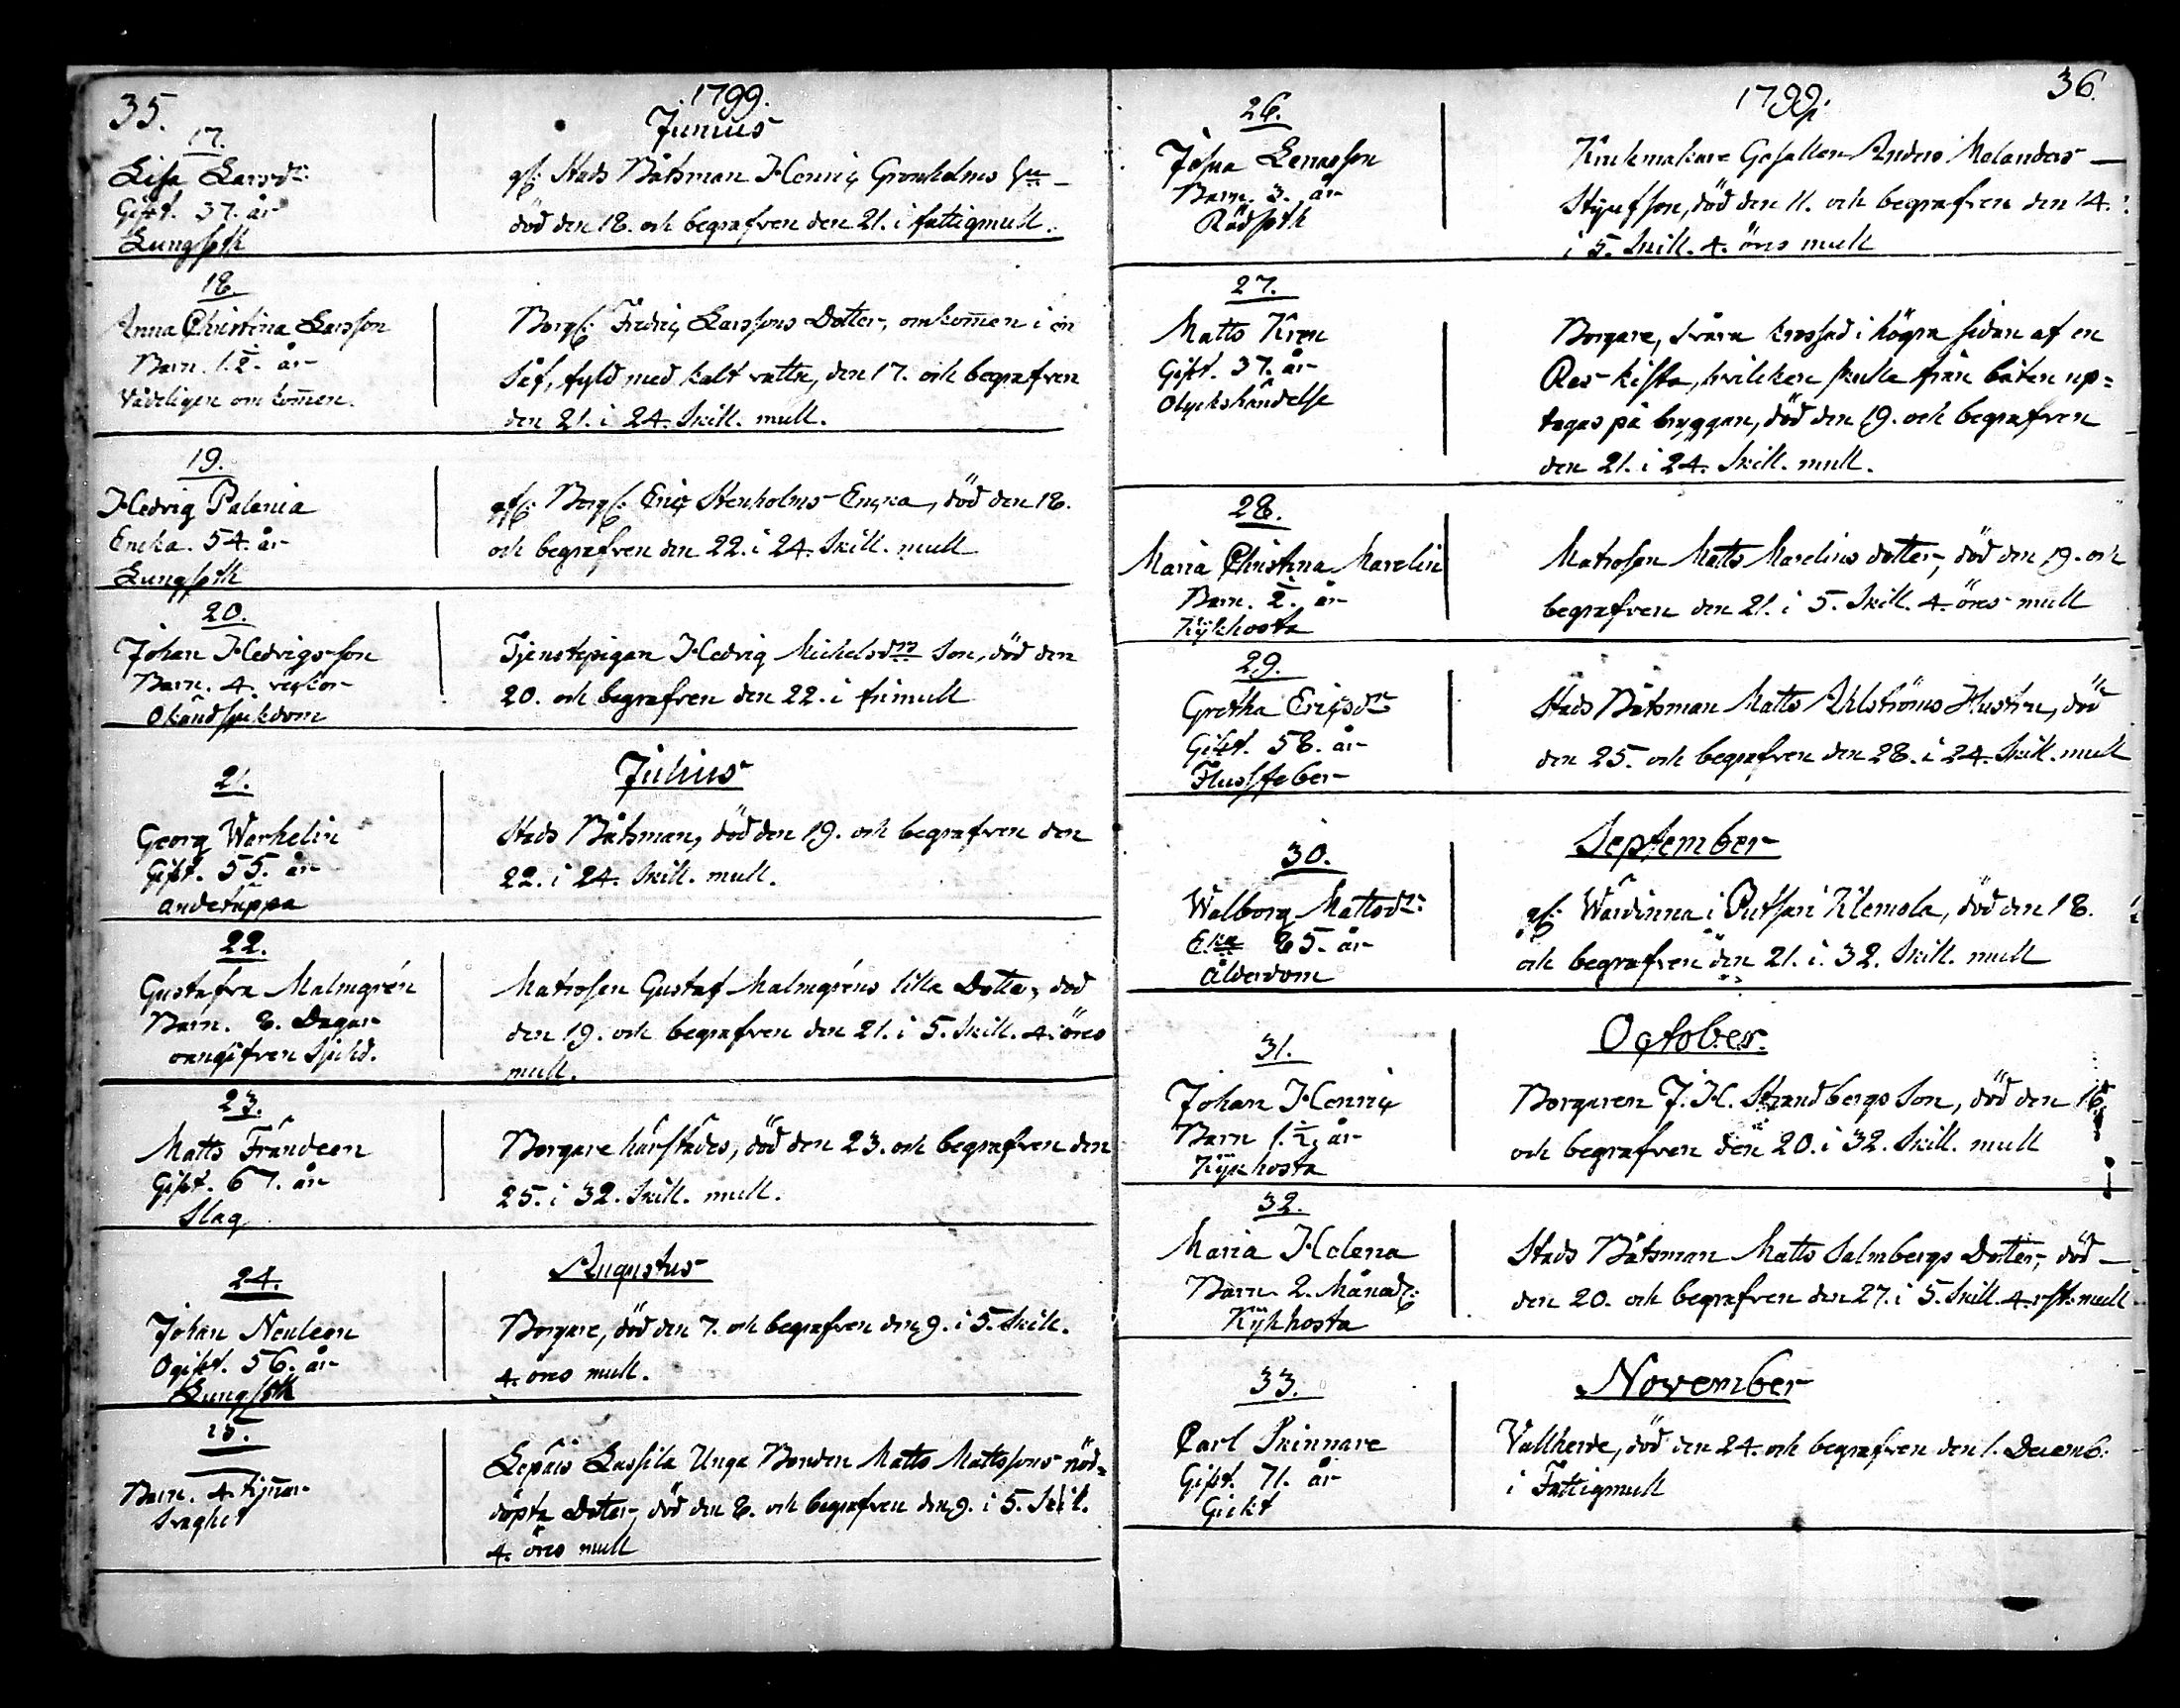 35.
1799.
Junius
17.
Lisa Larsdr:
Gift. 37. år
Lungsoth
gf: Stads Båtsman Henric Gronholms hu
död den 18. och begrafven den 21. i fattigmull.
18.
Anna Christina Larsson
Barn. 1.½. år
Vådeligen omkommen.
Borg: Fredric Larssons Dotter, omkommen i en
Såf, fyld med kalt vattn, den 17. och begrafven
den 21. i 24. Skill. mull.
19.
Hedvig Palenia
Encka. 54. år
Lungsoth
gf: Borg: Eric Stenholms Encka, död den 18.
och begrafven den 22. i 24. Skill. mull
20.
Johan Hedvigsson
Barn. 4. veckor
Okänd sjukdom
Tjenstepigan Hedvig Michelsdrs Son, död den
20. och begrafven den 22. i frimull
Julius
21.
Georg Warhelin
Gift. 55. år
andetäppa
Stads Båtsman, död den 19. och begrafven den
22. i 24. Skill. mull.
22.
Gustafva Malmgrén
Barn. 8. Dagar
oangifven Sjukd.
Matrosen Gustaf Malmgréns lilla Dotter, död
den 19. och begrafven den 21. i 5. Skill. 4. öres
mull.
23.
Matts Frändeen
Gift. 67. år
Slag
Borgare härstädes, död den 23. och begrafven den
25. i 32. Skill. mull.
Augustus
24.
Johan Neuleen
Ogift. 56. år
Lungsoth
Borgare, död den 7. och begrafven den 9. i 5. Skill.
4. öres mull.
25.
Barn. 4. timar
Svaghet
Lepäis Lassila Unga Bonden Matts Mattssons nöd=
döpta Dotter, död den 8. och begrafven den 9. i 5. Skil.
4. öres mull
36.
1799.
26.
Johan Lenasson
Barn. 3. år
Rödsoth
Krukmakare Gesällen Anders Melanders
Styufson, död den 11. och begrafven den 14.
i 5. Skill. 4. öres mull
27.
Matts Kren
Gift. 37. år
Olyckshändelse
Borgare, svåra krossad i högra sidan af en
Res kista, hvilcken skulle från båten up=
tagas på bryggan, död den 19. och begrafven
den 21. i 24. Skill. mull.
28.
Maria Christina Marelin
Barn. ½. år
Kykhosta
Matrosen Matts Marelins dotter, död den 19. och
begrafven den 21. i 5. Skill. 4. öres mull
29.
Gretha Ericsdr
Gift. 58. år
Flussfeber
Stads Båtsman Matts Ahlströms Hustru, död
den 25. och begrafven den 28. i 24. Skill. mull
September
30.
Walborg Mattsdr:
Eka 85. år
Ålderdom
gf: Wärdinna i Putsari Klemola, död den 18.
och begrafven den 21. i 32. Skill. mull
October.
31.
Johan Henric
Barn 1.½ år
Kykhosta
Borgaren J. H. Strandbergs Son, död den 16
och begrafven den 20. i 32. Skill. mull
32.
Maria Helena
Barn 2. Månad:
Kykhosta
Stads Båtsman Matts Salmbergs Dotter, död
den 20. och begrafven den 27. i 5. Skill. 4. rst: mull
November
33.
Carl Skinnare
Gift. 71. år
Gickt
Vallherde, död den 24. och begrafven den 1. Decemb.
i Fattigmull